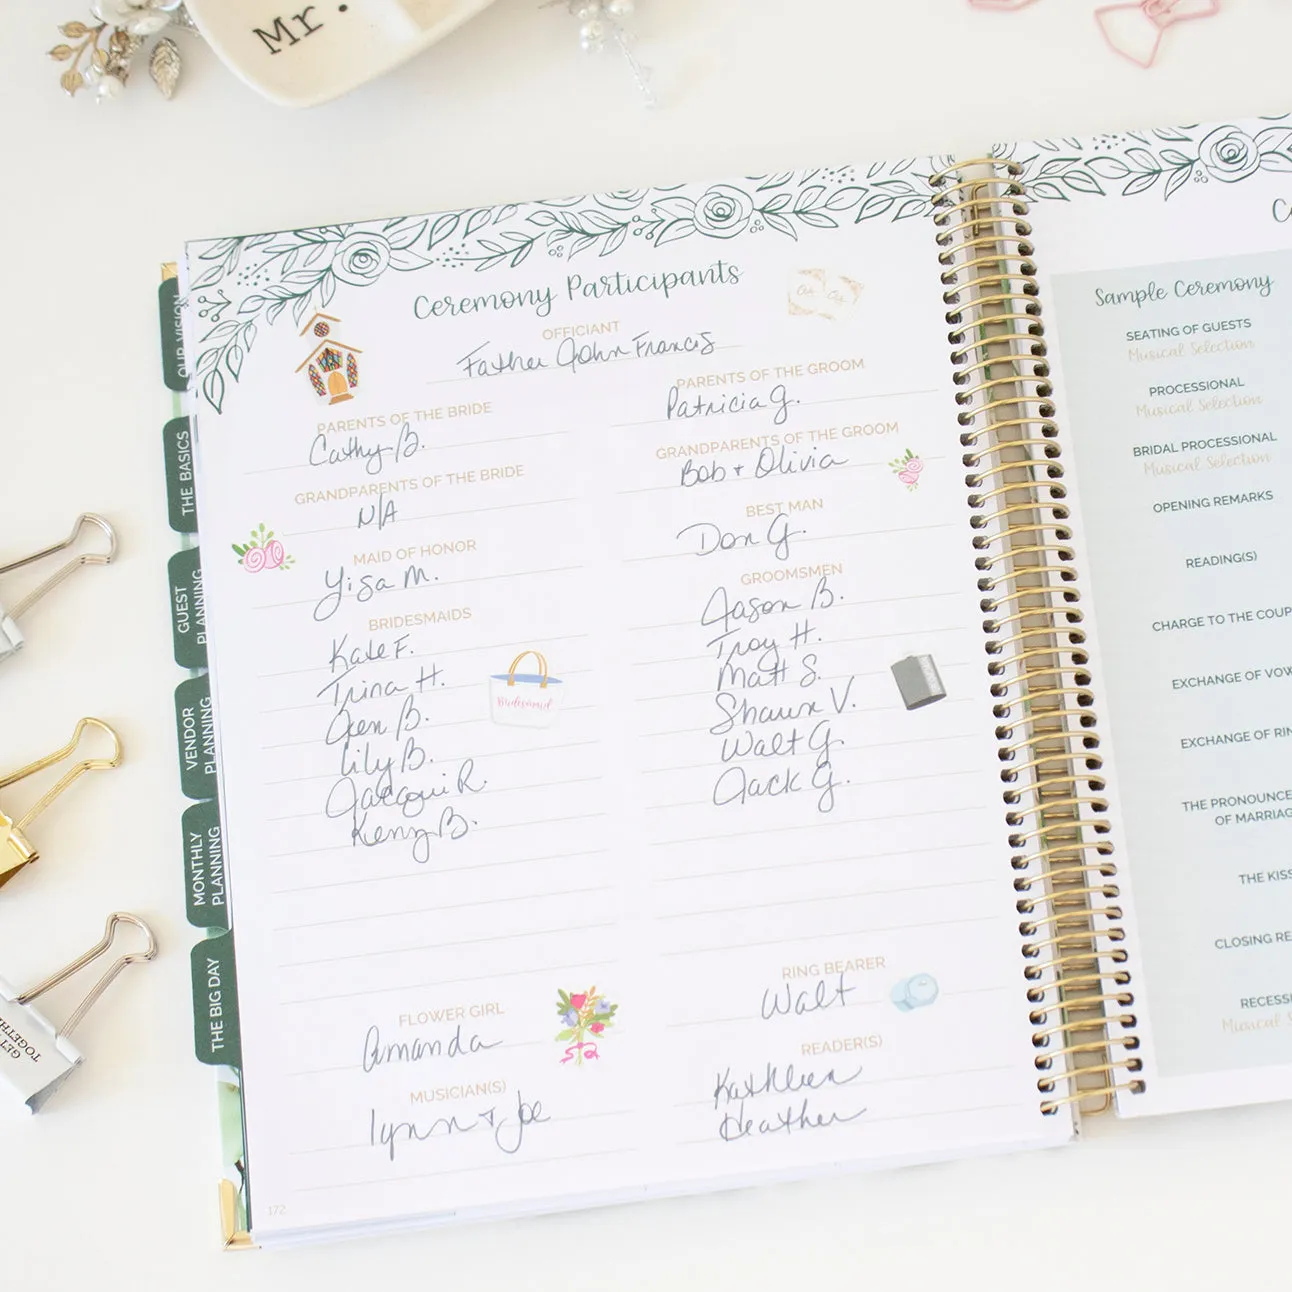 Mr.
Ceremony Participants
OFFICIANT
Father John Francis
PARENTS OF THE BRIDE
Cathy B.
GRANDPARENTS OF THE BRIDE
N/A
MAID OF HONOR
Lisa M.
BRIDESMAIDS
Kate F.
Trina H.
Jen B.
Lily B.
Jacqui R.
Kerry B.
Bridesmaid
FLOWER GIRL
Amanda
MUSICIAN(S)
Lynn + Joe
172
PARENTS OF THE GROOM
Patricia G.
GRANDPARENTS OF THE GROOM
Bob + Olivia
BEST MAN
Don G.
GROOMSMEN
Jason B.
Troy H.
Matt S.
Shaun V.
Walt G.
Jack G.
RING BEARER
Walt
READER(S)
Kathleen
Heather
OUR VISION
THE BASICS
GUEST
PLANNING
VENDOR
PLANNING
MONTHLY
PLANNING
THE BIG DAY
GET
Sample Ceremony
SEATING OF GUESTS
Musical Selection
PROCESSIONAL
Musical Selection
BRIDAL PROCESSIONAL
Musical Selection
OPENING REMARKS
READING(S)
CHARGE TO THE COUP
EXCHANGE OF VOW
EXCHANGE OF RIN
THE PRONOUNCE
OF MARRIAG
THE KISS
CLOSING RE
RECESS
Musical S